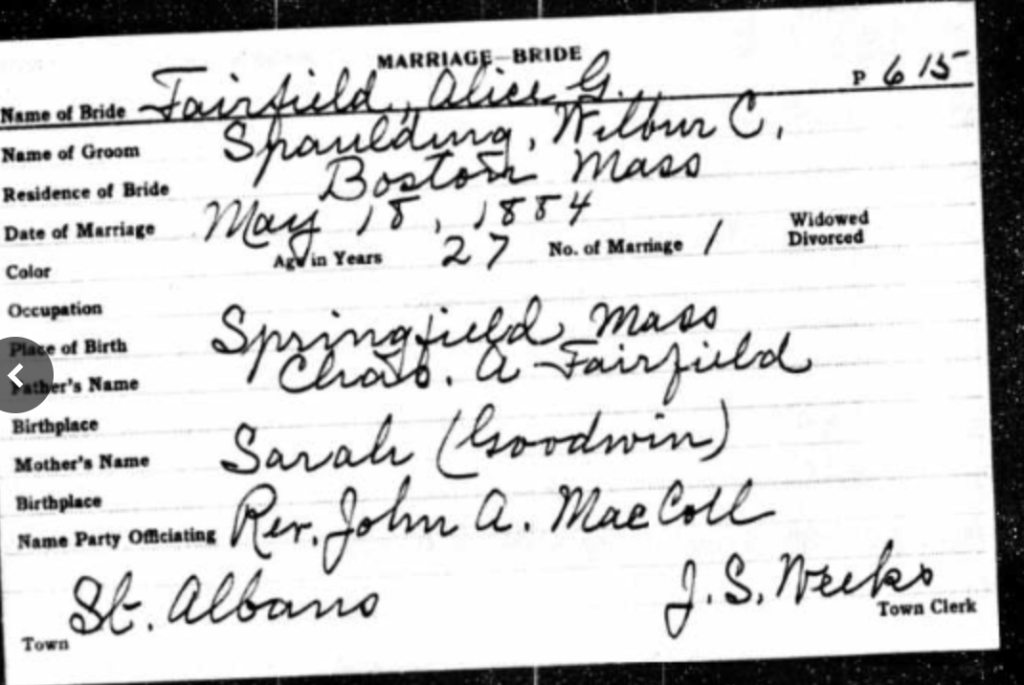 MARRIAGE—BRIDE
P 615
Name of Bride Fairfield, Alice G.
Name of Groom Spaulding, Wilbur C.
Residence of Bride Boston Mass
Date of Marriage May 18, 1884
Color Age in Years 27 No. of Marriage 1 Widowed Divorced
Occupation
Place of Birth Springfield, Mass
Father's Name Chas. A Fairfield
Birthplace
Mother's Name Sarah (Goodwin)
Birthplace
Name Party Officiating Rev. John A. MacColl
Town St. Albans J. S. Weeks Town Clerk